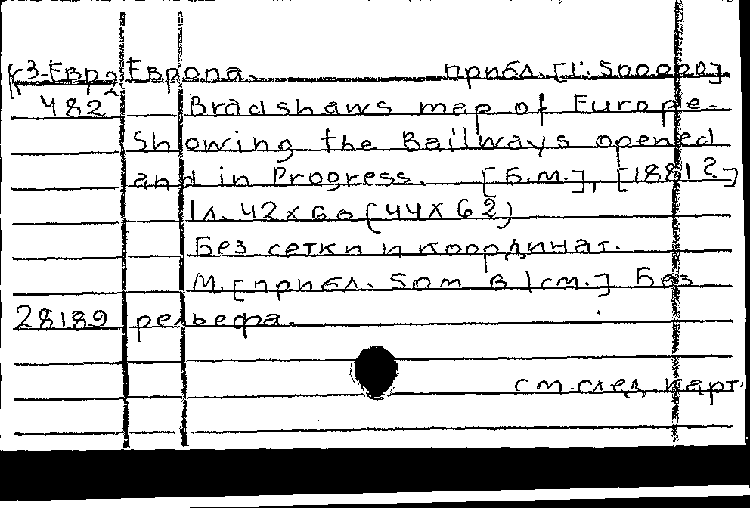 К3-Евр Европа. прибл. [1:500000].
482 Bradshaws map of Europe.
Showing the Bailways opened
and in Progress. [Б.м.], [1881?]
1 л. 42×60 (44×62)
Без сетки и координат.
М. [прибл. 50 m в 1 см.] Без
28189 рельефа.
см. след. карт.